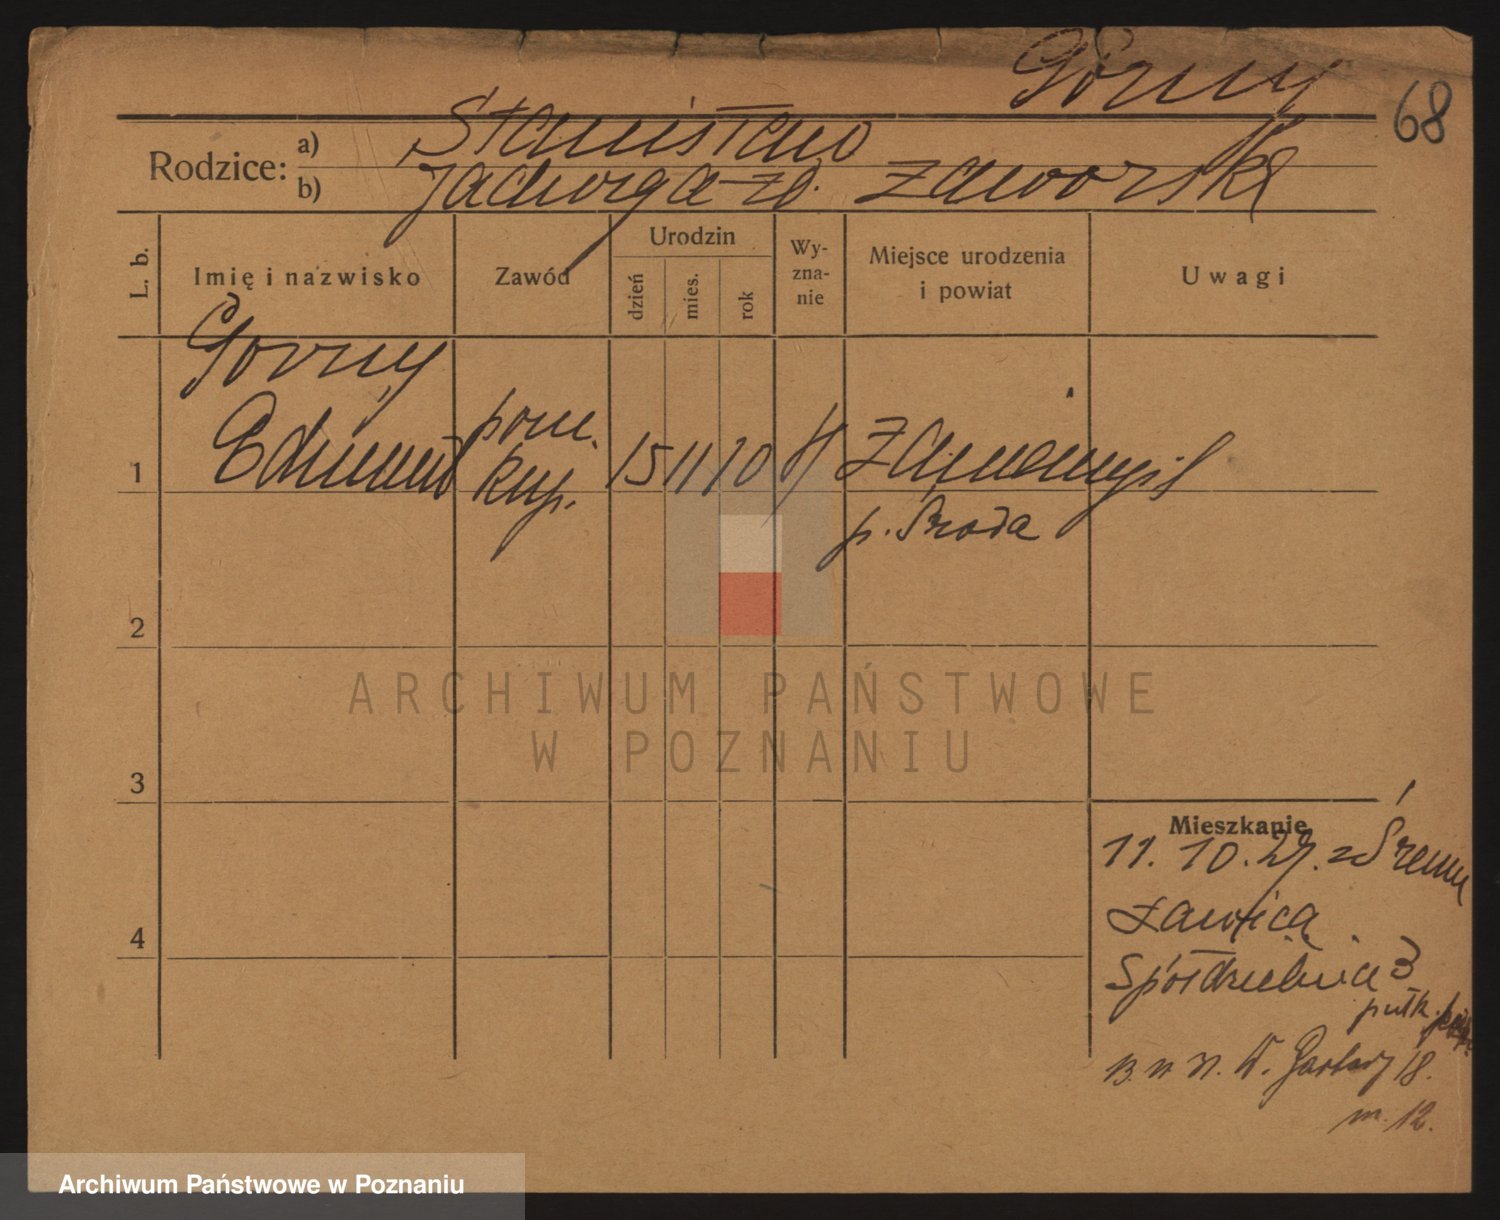 Górny
68
Rodzice:
a) Stanisław
b) Jadwiga zd. Zaworska
L. b.
Imię i nazwisko
Zawód
Urodzin
dzień
mies.
rok
Wy-
zna-
nie
Miejsce urodzenia
i powiat
Uwagi
Górny
1 Edmund
pom.
kup.
15 11 10
Zaniemyśl
p. Środa
2
3
4
Mieszkanie
11. 10. 29. ze Śremu
Ławica
Spółdzielnia 3
pułk.
Garbary 18.
m. 12.
ARCHIWUM PAŃSTWOWE
W POZNANIU
Archiwum Państwowe w Poznaniu